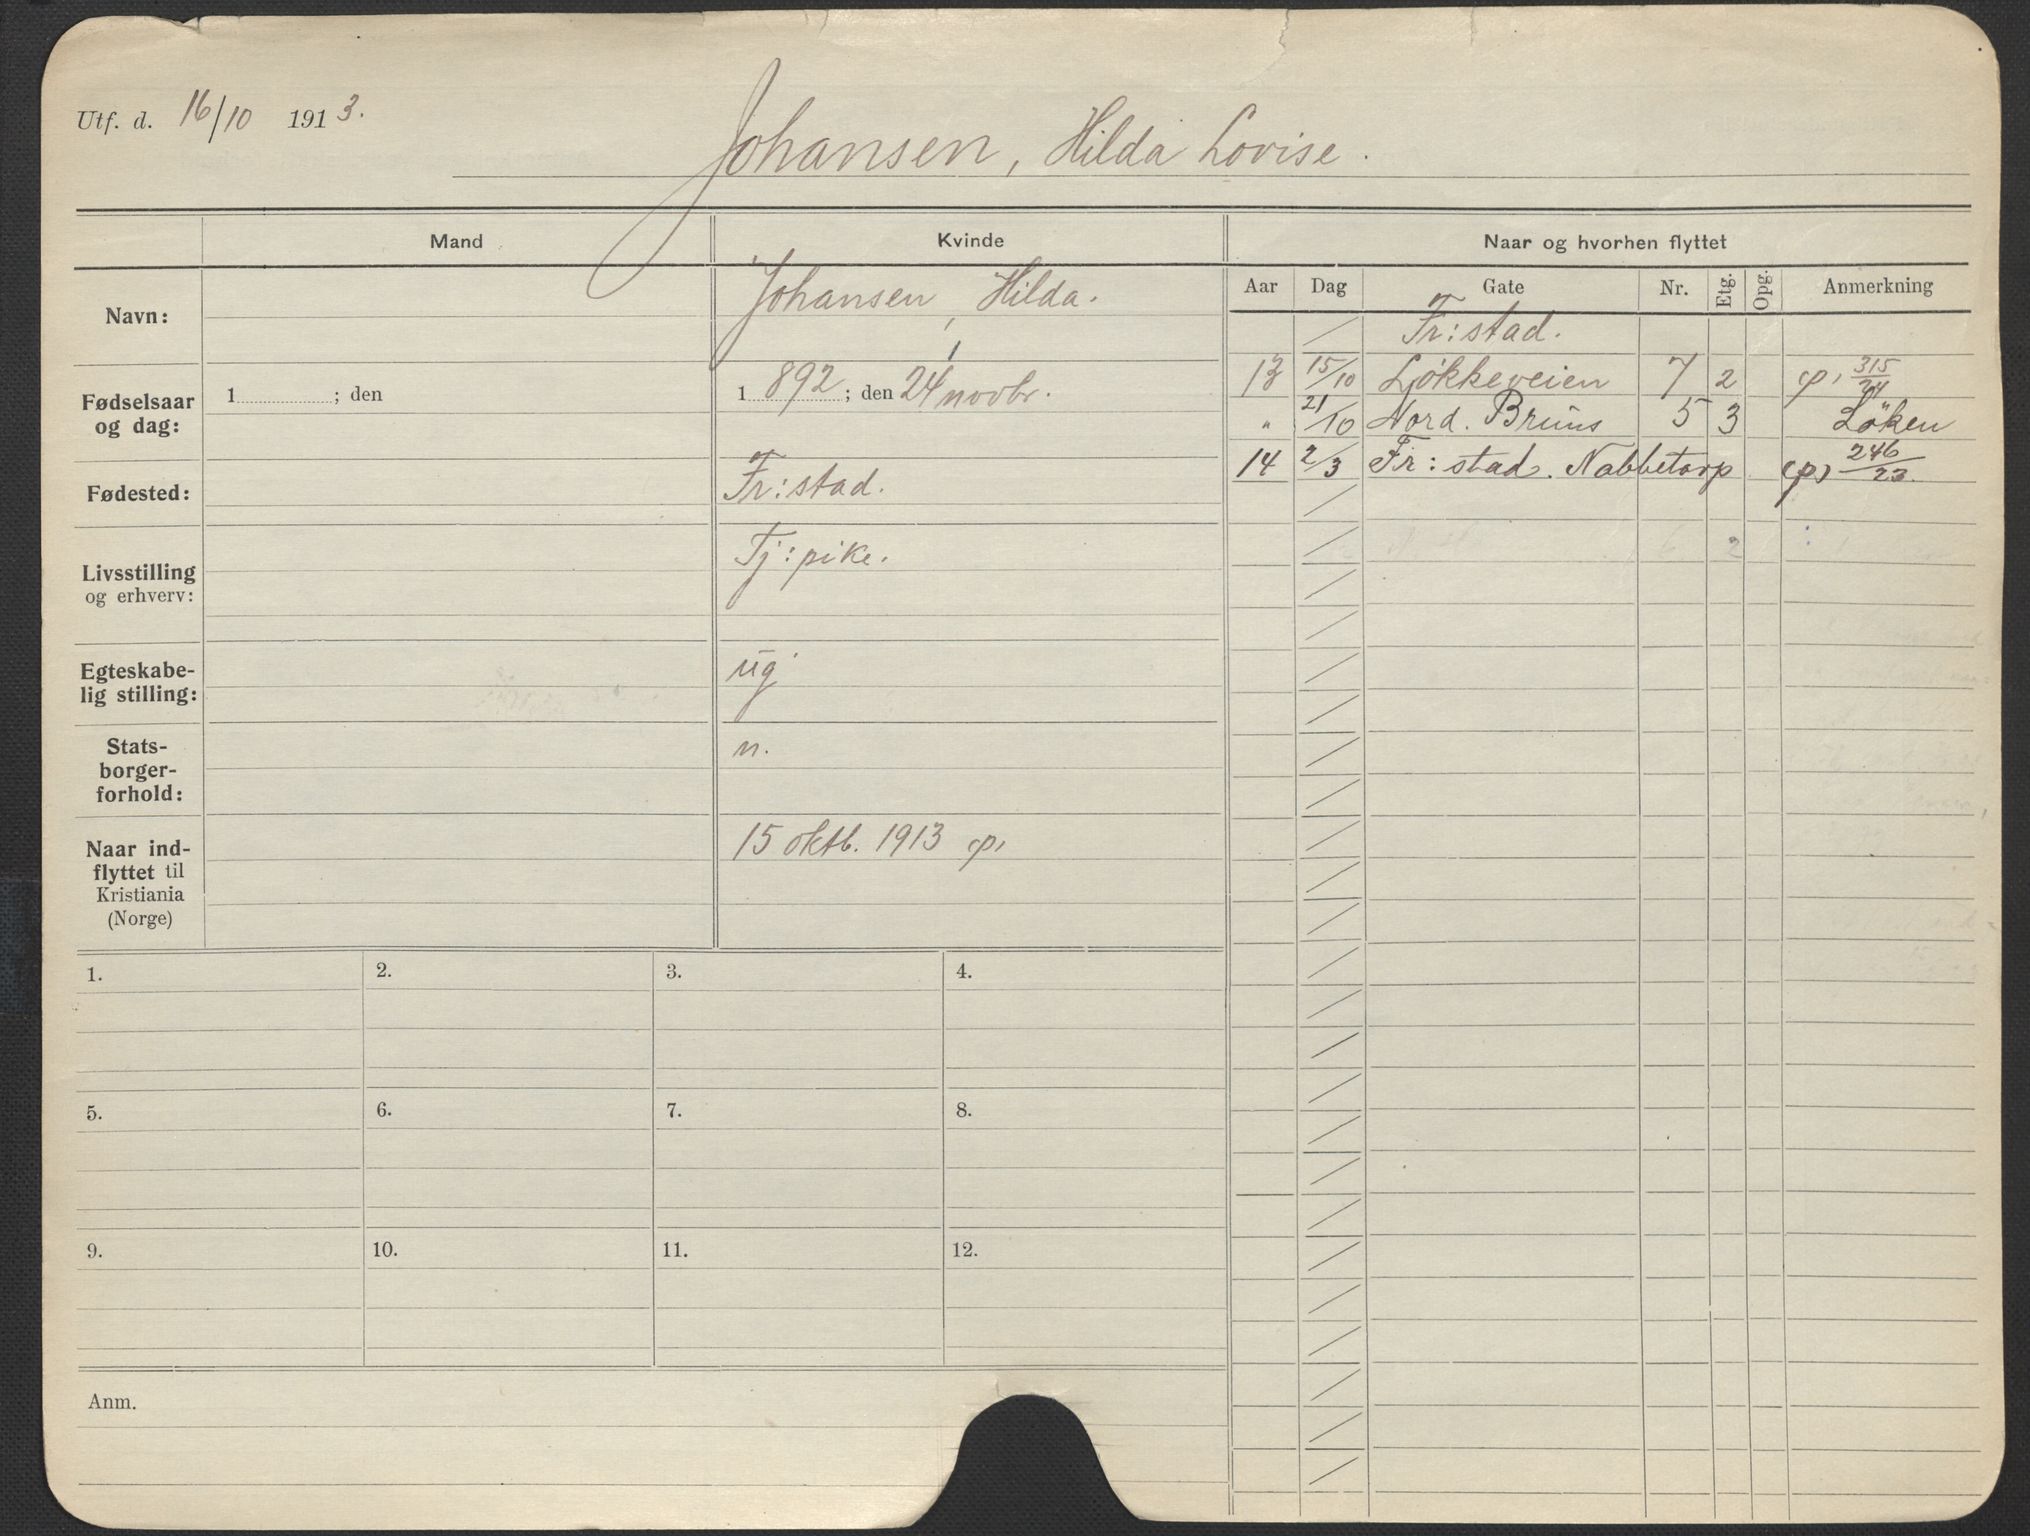 Utf. d. 16/10 1913.
Johansen, Hilda Lovise.
Mand
Kvinde
Naar og hvorhen flyttet
Navn:
Johansen, Hilda.
Fødselsaar
og dag:
1 ; den
1 892 ; den 24 novbr.
Fødested:
Fr:stad.
Livsstilling
og erhverv:
Tj:pike.
Egteskabe-
lig stilling:
ug
Stats-
borger-
forhold:
n.
Naar ind-
flyttet til
Kristiania
(Norge)
15 oktb. 1913 p,
Aar Dag Gate Nr. Etg. Opg. Anmerkning
/ Fr:stad.
13 15/10 Løkkeveien 7 2 p, 315/24
" 21/10 Nord. Bruns 5 3 Løken
14 2/3 Fr:stad. Nabbetorp (p) 246/23.
1. 2. 3. 4.
5. 6. 7. 8.
9. 10. 11. 12.
Anm.